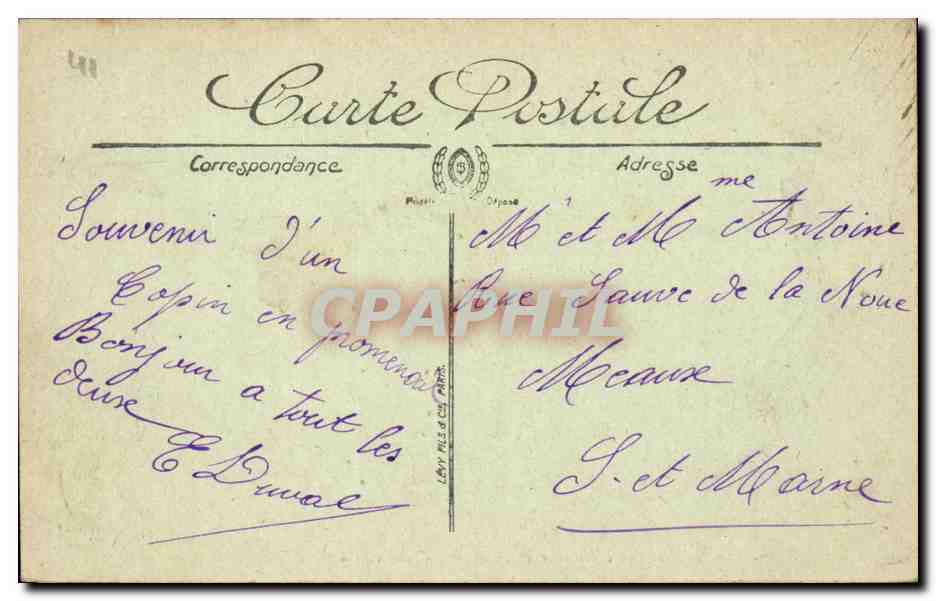 Carte Postale
Correspondance
Adresse
Modèle Déposé
Souvenir d'un
Copin en promenade
Bonjour a tout les
deux
E Duval
M et M me Antoine
Rue Sauve de la Noue
Meaux
S. et Marne
LÉVY FILS & Cie, PARIS.
CPAPHIL